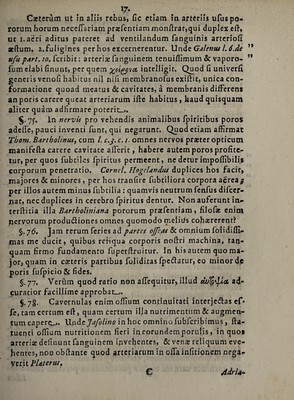 17.
Cæterùm ut in allis rebus, sic etiam in arteriis usus po-
rorum horum necessariam præsentiam monstrat, qui duplex est,
ut 1. aëri aditus pateret ad ventilandum sanguinis arteriosi
æstum, 2. fuligines per hos excernerentur. Unde Galenus l. 6. de
usu part. 10. scribit: arteriæ sanguinem tenuissimum & vapore-
sum elabi sinunt, per quem intelligit. Quod si universi
generis venosi habitus nil nisi membranosus existit, unica con-
formatione quoad meatus & cavitates, à membranis differens
an poris carere queat arteriarum iste habitus, haud quisquam
aliter quàm adfirmare poterit.
§. 75. In nervis pro vehendis animalibus spiritibus poros
adesse, pauci inventi sunt, qui negarunt. Quod etiam affirmat
Thom. Bartholinus, cum l. c. omnes nervos præter opticum
manifesta carere cavitate asserit, habere autem poros profite-
tur, per quos subtiles spiritus permeent, ne detur impossibilis
corporum penetratio. Cornel. Hogelandus duplices hos facit,
majores & minores, per hos transire subtiliora corpora aërea,
per illos autem minus subtilia: quamvis neutrum sensus discer-
nat, nec duplices in cerebro spiritus dentur. Non auferunt in-
terstitia illa Bartholiniana pororum præsentiam, filosæ enim
nervorum productiones omnes quomodo melius cohærerent?
§. 76. Jam rerum series ad partes osseas & omnium solidissi-
mas me ducit, quibus reliqua corporis nostri machina, tan-
quam firmo fundamento superstruitur. In his autem quo ma-
jor, quam in cæteris partibus soliditas spectatur, eo minor de
poris suspicio & fides.
§. 77. Verùm quod ratio non assequitur, illud ac-
curatior facillime approbat.
§. 78. Cavernulas enim ossium continuitati interjectas es-
se, tam certum est, quam certum illa nutrimentum & augmen-
tum capere. Unde Jasolino in hoc omnino subscribimus, sta-
tuenti ossium nutritionem fieri in eorundem porulis, in quos
arteriæ definunt sanguinem invehentes, & venæ reliquum eve-
hentes, non obstante quod arteriarum in ossa insitionem nega-
verit Platerus,
C Adria-